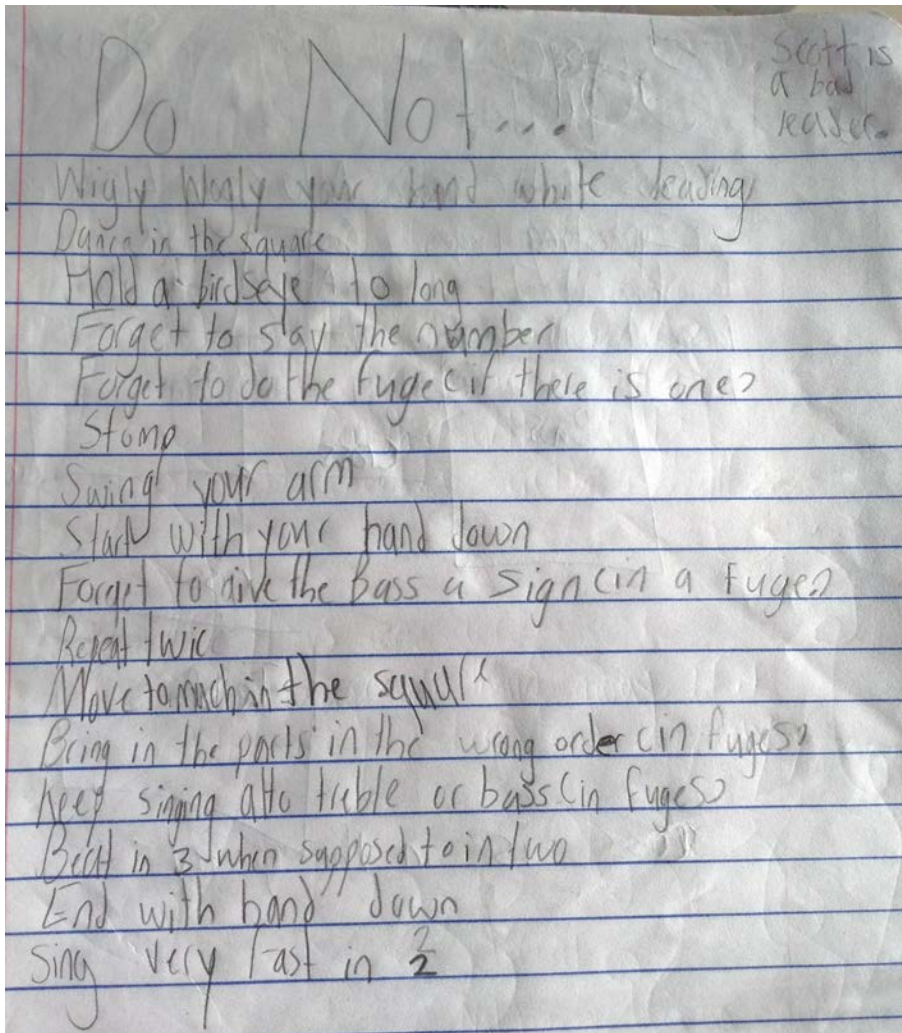 Do Not...!
Scott is
a bad
leader.
Wigly Wogly your hand while leading
Dance in the square
Hold a birdseye to long
Forget to say the number
Forget to do the fuge (if there is one)
Stomp
Swing your arm
Start with your hand down
Forget to give the Bass a sign (in a fuge)
Repeat twic
Move to much in the square
Bring in the parts in the wrong order (in fuges)
Keep singing alto treble or bass (in fuges)
Beat in 3 when supposed to in two
End with hand down
Sing very fast in 2/2